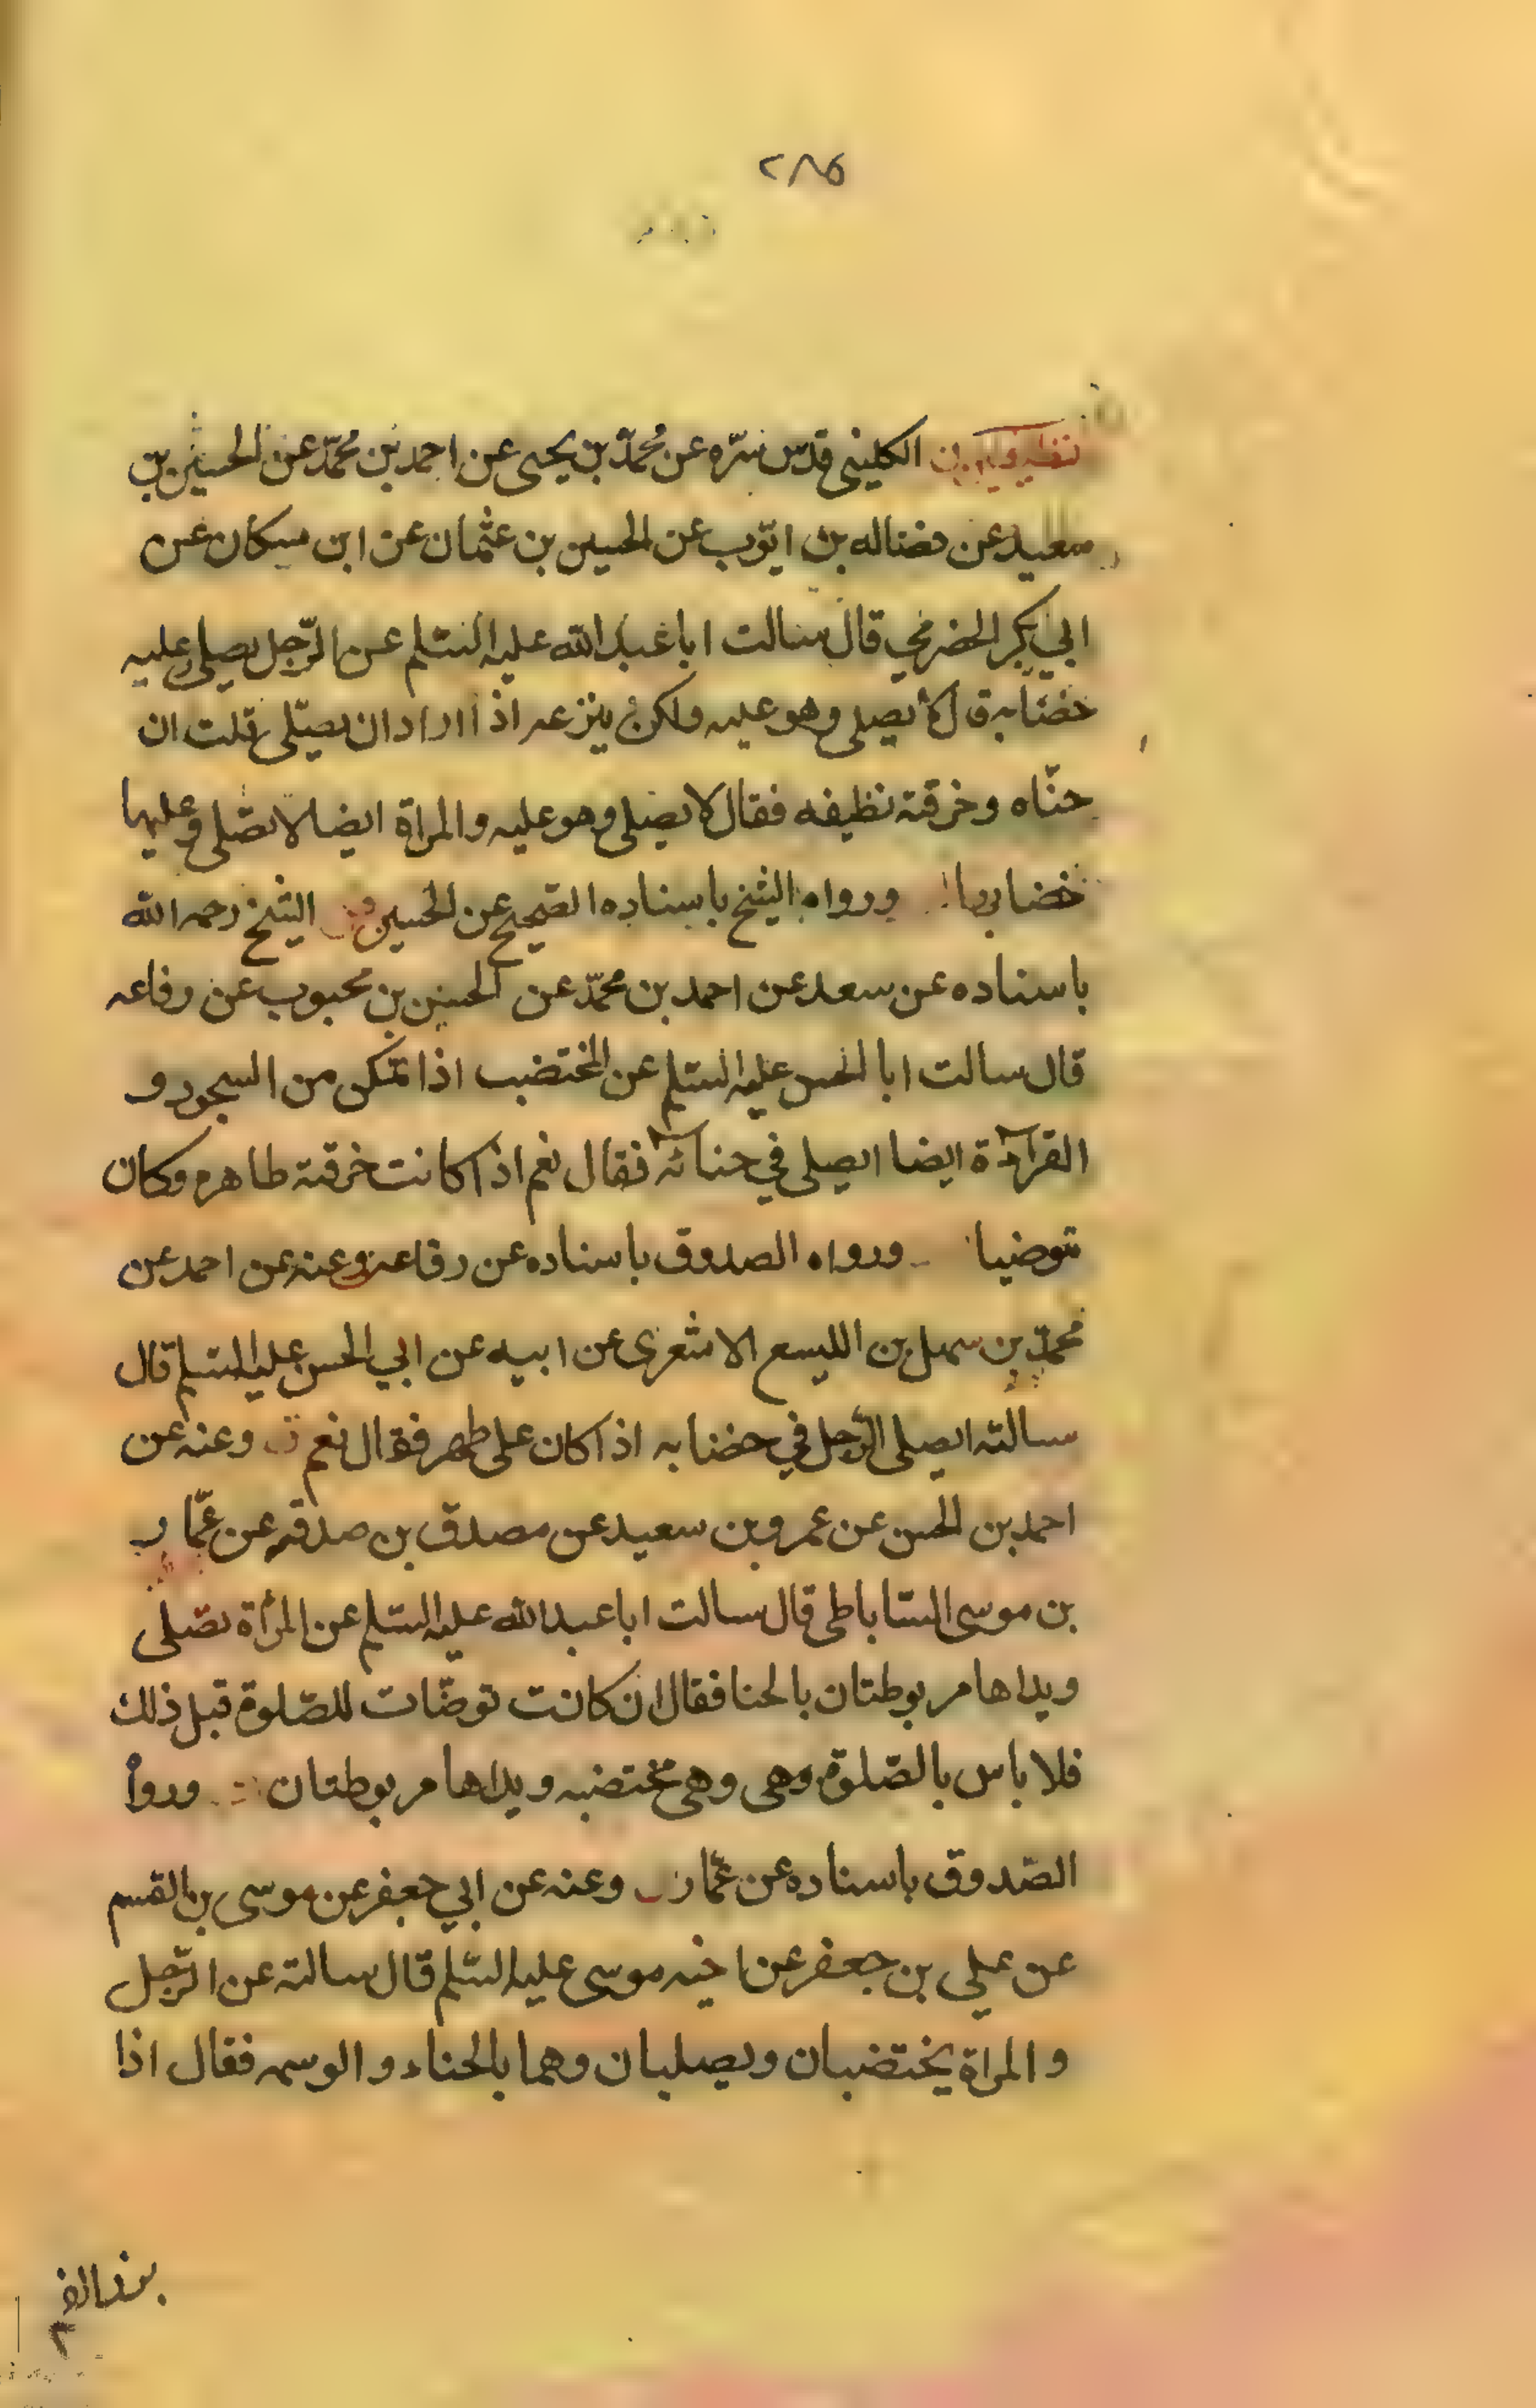 ٢٨٥
الكليني قدس سرّه عن محمّد بن يحيى عن احمد بن محمّد عن الحسين بن
سعيد عن فضاله بن ايّوب عن الحسين بن عثمان عن ابن مسكان عن
ابي بكر الحضرمي قال سالت ابا عبد الله عليه السّلم عن الرّجل يصلي وعليه
خضابه قال لا يصلي وهو عليه ولكن ينزعه اذا اراد ان يصلّي قلت ان
حنّاه وخرقته نظيفه فقال لا يصلي وهو عليه والمراة ايضا لا تصّلي وعليها
خضابها ورواه الشيخ باسناده الصحيح عن الحسين الشيخ رحمه الله
باسناده عن سعد عن احمد بن محمّد عن الحسن بن محبوب عن رفاعه
قال سالت ابا الحسن عليه السّلم عن المختضب اذا تمكن من السجود و
القرآءة ايضا ايصلي في حنائه فقال نعم اذا كانت خرقته طاهره وكان
متوضيا ورواه الصدوق باسناده عن رفاعه وعنه عن احمد عن
محمّد بن سهل بن الليسع الاشعرى عن ابيه عن ابي الحسن عليه السّلم قال
سالته ايصلى الرّجل في خضابه اذا كان على طهر فقال نعم وعنه عن
احمد بن الحسن عن عمرو بن سعيد عن مصدق بن صدقه عن عمّار
بن موسى السّاباطى قال سالت ابا عبد الله عليه السّلم عن المرأة تصّلى
ويداها مربوطتان بالحنا فقال ان كانت توضّات للصّلوة قبل ذلك
فلا باس بالصّلوة وهى وهى مختضبه ويداها مربوطتان ورواه
الصّدوق باسناده عن عمّار وعنه عن ابي جعفر عن موسى بن القسم
عن علي بن جعفر عن اخيه موسى عليه السّلم قال سالته عن الرّجل
والمراة يختضبان ويصليان وهما بالحناء والوسمه فقال اذا